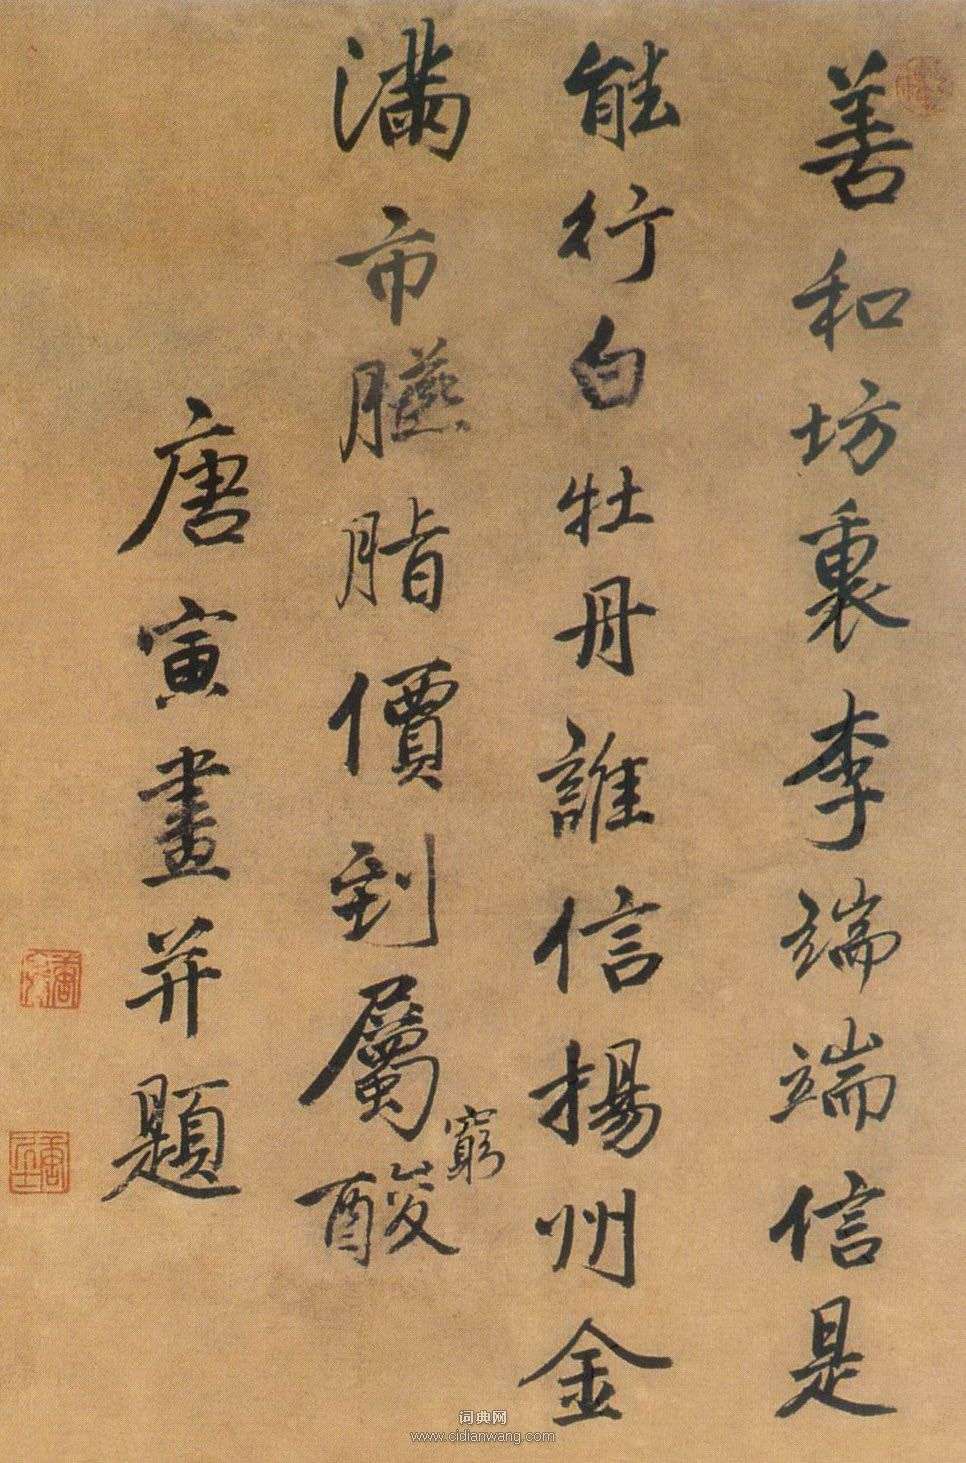 善和坊裏李端端信是
能行白牡丹誰信揚州金
滿市臙脂價到屬窮酸
唐寅畫并題
词典网
www.cidianwang.com